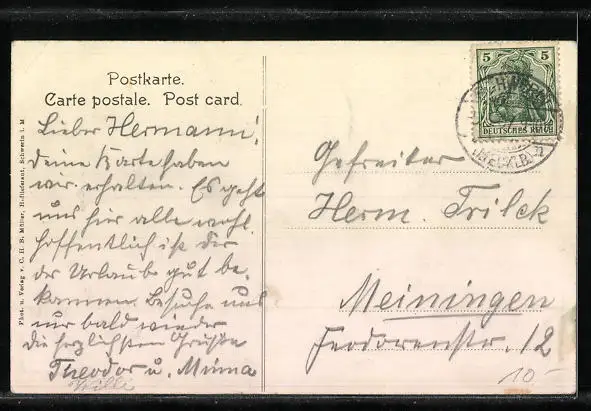 Postkarte.
Carte postale. Post card.
Lieber Hermann!
Deine Karte haben
wir erhalten. Es geht
uns hier alle wohl
hoffentlich ist dir
der Urlaub gut be-
kommen. Besuche uns
nur bald wieder
die herzlichsten Grüße
Theodor u. Minna
Willi
Phot. u. Verlag v. C. H. B. Müller, Hoflieferant, Schwerin i. M
5 5
DEUTSCHES REICH
SCHWERIN
(MECKLB.)
Gefreiter
Herm. Trilck
Meiningen
Feodorenstr. 12
10-